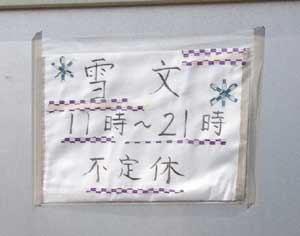 雪文
11時～21時
不定休